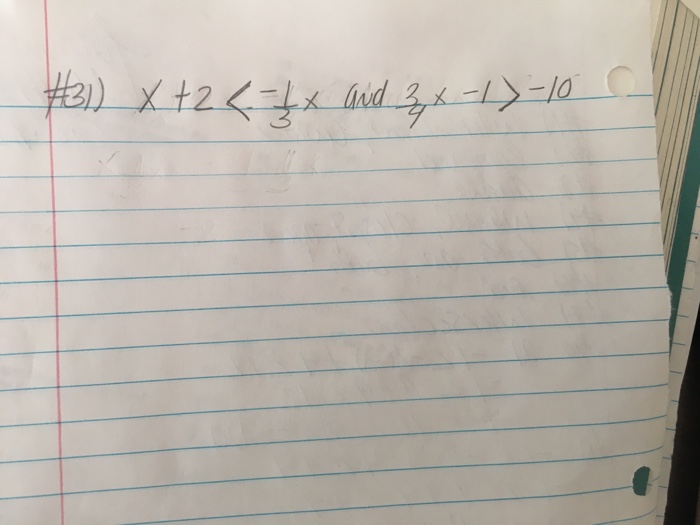 #31) x + 2 < -1/3 x and 3/4 x - 1 > -10